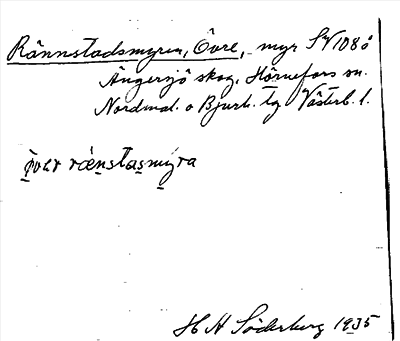 Rännstadsmyren, Övre, myr SV 108 ö
Ängersjö skog, Hörnefors sn.
Nordmal. o Bjurh. tg Västerb. l.
övər rænstasmyra
H H Söderberg 1935